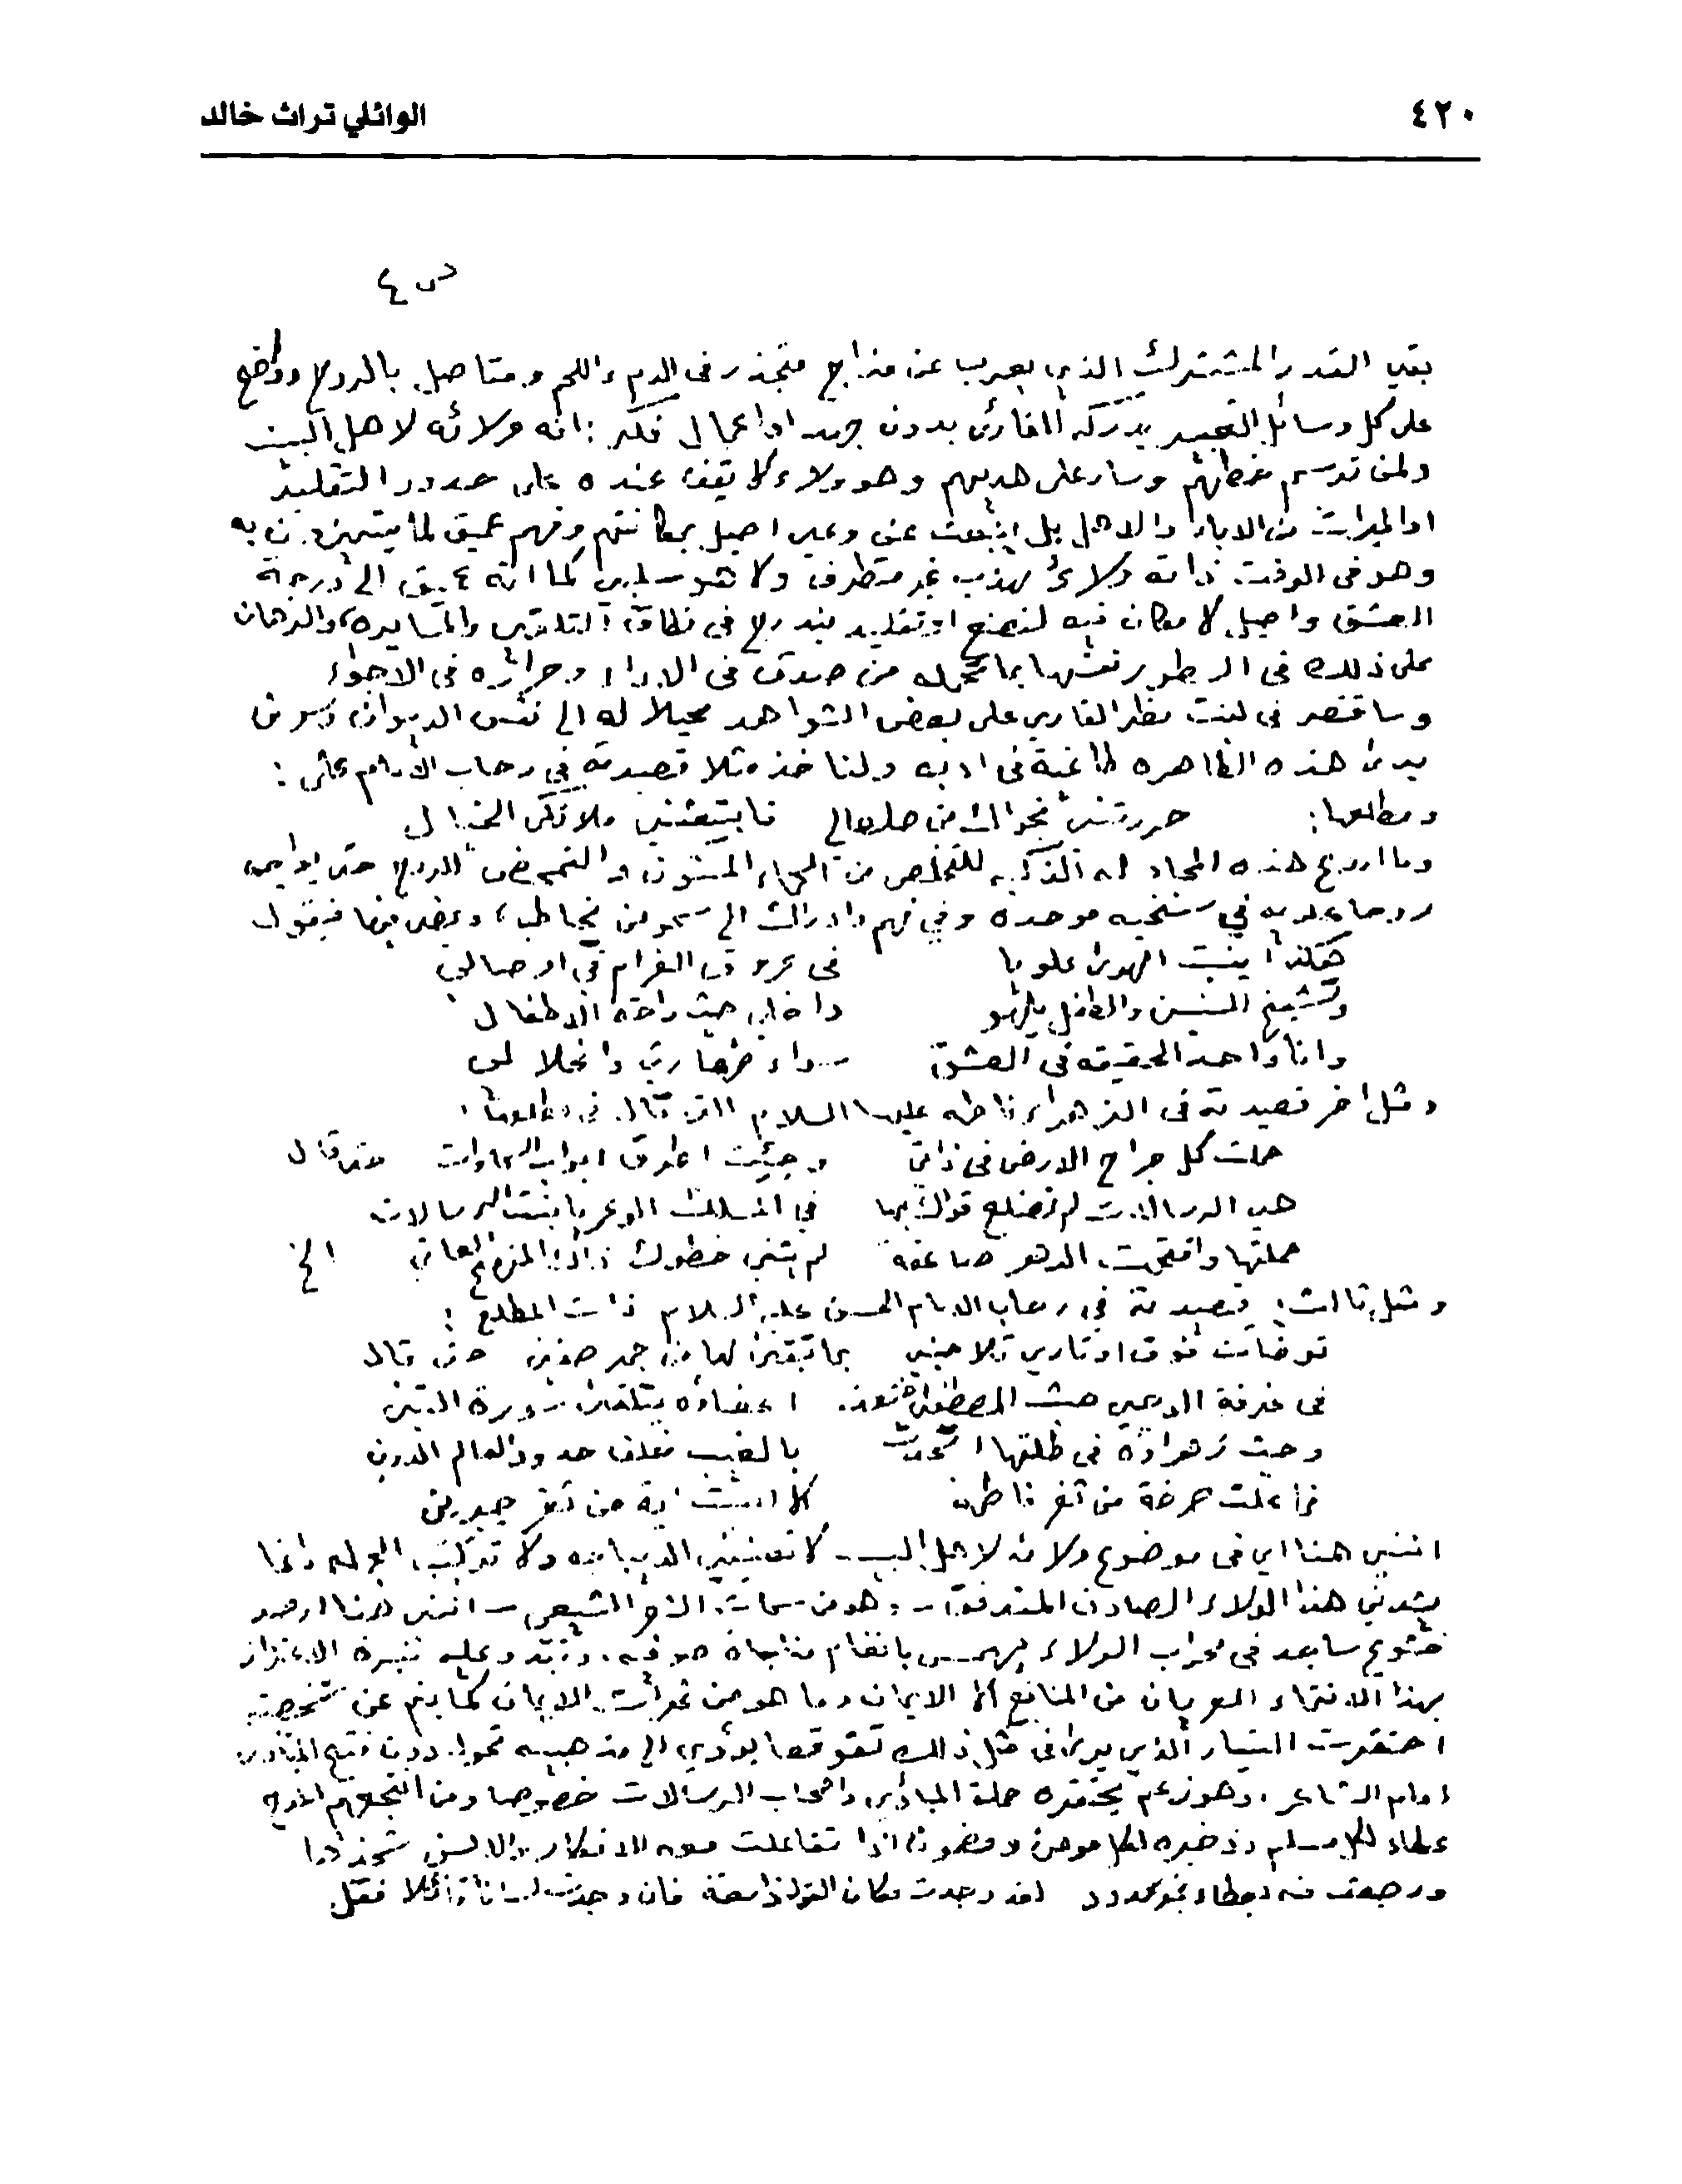 ٤٢٠
الوائلي تراث خالد
ص ٤
بقي القدر المشترك الذي يعرب عن مزاج متجذر في الدم واللحم ومتاصل بالروح وواضح
على كل وسائل التعبير يدركه القارئ بدون جهد او اعمال فكر : انه ولائه لاهل البيت
ولمن ترسم خطاهم وسار على هديهم وهو ولاء لا يقف عنده على حدود التقليد
او الميراث من الاباء والاهل بل انبعث عن وعي اصيل بمكانتهم وفهم عميق لما يتميزون به
وهو في الوقت ذاته ولاء مهذب غير متطرف ولا هو سلبي كما انه عميق الى درجة
العشق واصيل لا مكان فيه لتصنع او تقليد يندرج في نطاق التلقين والمسايرة، والبرهان
على ذلك في السطور نفسها بما تحمله من صدق في الاداء وحراره في الاجواء
وساقتصر في لفت نظر القاري على بعض الشواهد محيلا له الى نفس الديوان
يرى هذه الظاهره طاغية في ادبه ولناخذ مثلا قصيدته في رحاب الامام علي :
ومطلعها: حررتني نجواك من صلصالي فابتعثني ملائكي الخيال
وما اروع هذه المحاوله الذكيه للتخلص من الحمأ المسنون والتمحض للروح حتى يواجه
روحا علويه في سنخيه موحده وفي فهم وادراك الى سمو من يخاطب، ويمضي فيها فيقول
هكذا ينبت الهوى علويا في عروق الغرام في اوصالي
وتشيخ السنين والطفل يلهو داخلي حيث راحة الاطفال
وانا واحد الحقيقه في العشق سواء وانحلالي
ومثل اخر قصيدته في الزهراء فاطمه عليها السلام التي قال في مطلعها:
حملت كل جراح الارض في ذاتي وجئت اطرق ابواب السماوات حتى قال
هب الرسالات لم تضلع قواك بها في المسلك الوعر يا بنت الرسالات
حملتها واقتحمت الدهر صاعقة لم يثني خطوك ذاك المنزع العاتي الخ
ومثل ثالث: قصيدته في رحاب الامام الحسين عليه السلام ذات المطلع :
توضأت فوق اوتاري تلاحيني بما تبقى لها من جمر صفين حتى قال
في غرفة الوحي حيث المصطفى اعضاؤه يتلقى سورة التين
وحيث زهراؤه في ظلها بالغيب خلف حدود العالم الدون
فزاعلت صرخة من ثغر فاطمة كما اية من ثغر جبرين
انني هنا اي في موضوع ولائه لاهل البيت لا تعنيني الديباجه ولا تركيب الجمله وانما
يشدني هذا الولاء الصادق المتدفق - وهو من سمات المزاج الشيعي - انني هنا ارصد
خشوع ساجد في محراب الولاء يهمس بانغام مناجاة صوفيه، وتبدو عليه نبرة الاعتزاز
بهذا الانتماء العريان من المنافع الا الايمان وما هو من ثمرات الايمان كما ينم عن شخصيته
احتقرت التيار الذي يرى في مثل ذلك تقوقعا يؤدي الى مذهبيه تحول دون فتح
امام الشاعر، وهو زعم يحتقره حملة المبادئ واصحاب الرسالات خصوصا ومن انتجعهم
عطاء لكل مسلم وذخيره لكل مومن ومضمونا اذا تفاعلت معه الافكار والالسن
ورجعت منه بعطاء غير محدود لقد وجدت مكان القول ذا سعة فان وجدت لسانا قائلا فقل